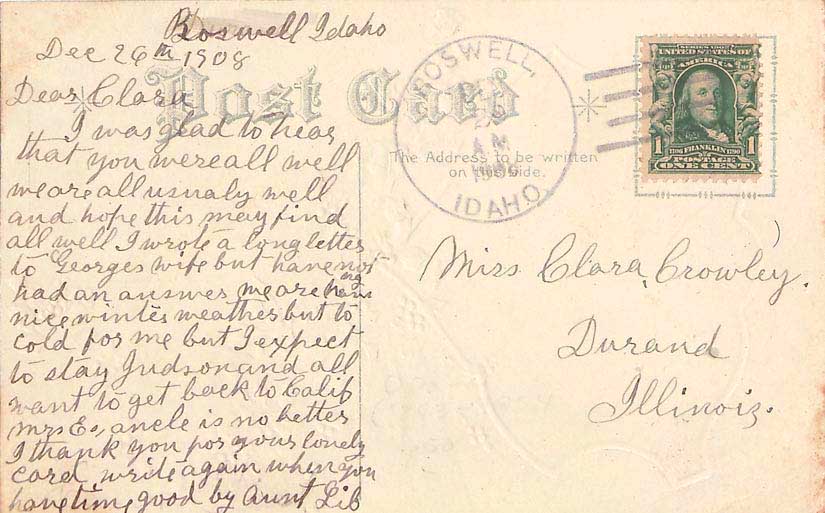 Roswell Idaho
Dec 26th 1908
Dear Clara
I was glad to hear
that you were all well
we are all usualy well
and hope this may find
all well I wrote a long letter
to Georges wife but have not
had an answer we are having
nice winter weather but to
cold for me but I expect
to stay Judson and all
want to get back to Calif
Mrs Es, uncle is no better
I thank you for your lovely
card, write again when you
have time good by Aunt Lib
Post Card
The Address to be written
on this side.
ROSWELL,
A M
IDAHO
SERIES 1902
UNITED STATES OF
AMERICA
1 1706 FRANKLIN 1790 1
POSTAGE
ONE CENT
Miss Clara Crowley.
Durand
Illinois.